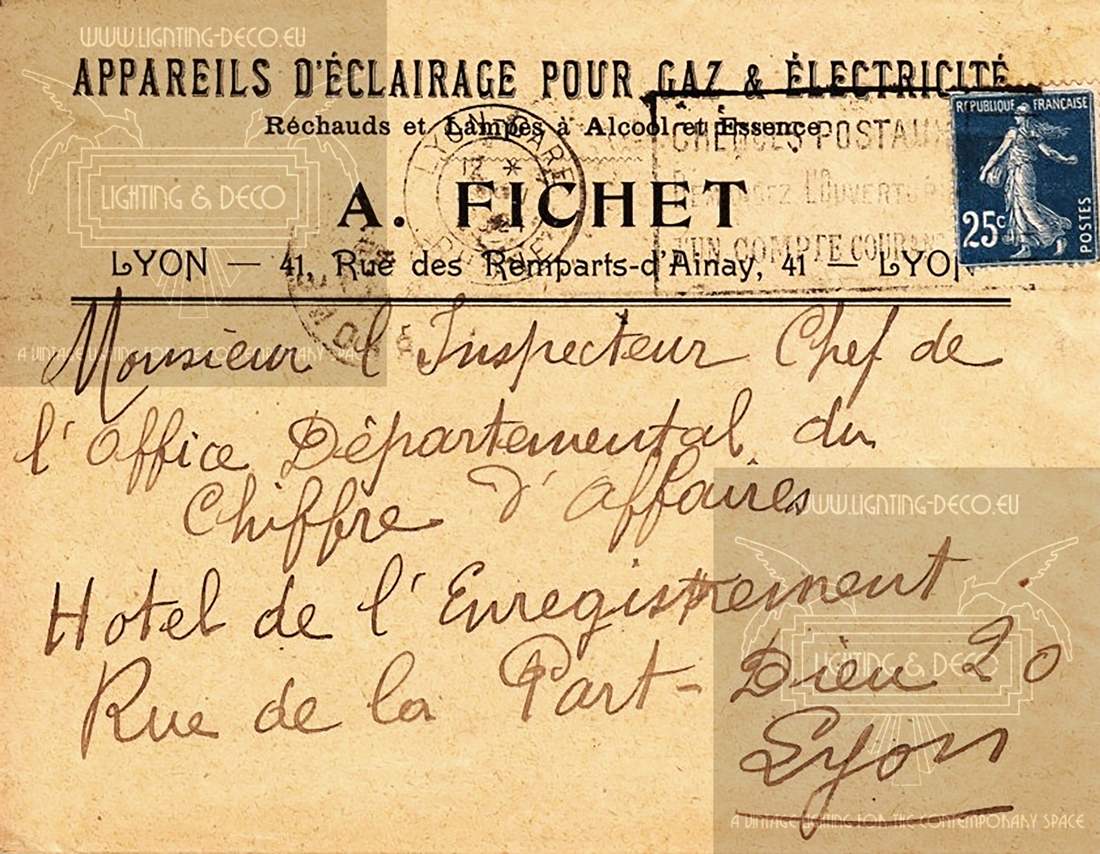 WWW.LIGHTING-DECO.EU
APPAREILS D'ÉCLAIRAGE POUR GAZ & ÉLECTRICITÉ
Réchauds et Lampes à Alcool et Essence
LIGHTING & DECO
A. FICHET
LYON — 41, Rue des Remparts-d'Ainay, 41 — LYON
LYON GARE
CHÈQUES POSTAUX
L'OUVERT
D'UN COMPTE COURANT
REPUBLIQUE FRANÇAISE
25c
POSTES
Monsieur l'Inspecteur Chef de
l'Office Départemental du
Chiffre d'Affaires
Hotel de l'Enregistrement
Rue de la Part-Dieu 20
Lyon
A VINTAGE LIGHTING FOR THE CONTEMPORARY SPACE
WWW.LIGHTING-DECO.EU
LIGHTING & DECO
A VINTAGE LIGHTING FOR THE CONTEMPORARY SPACE